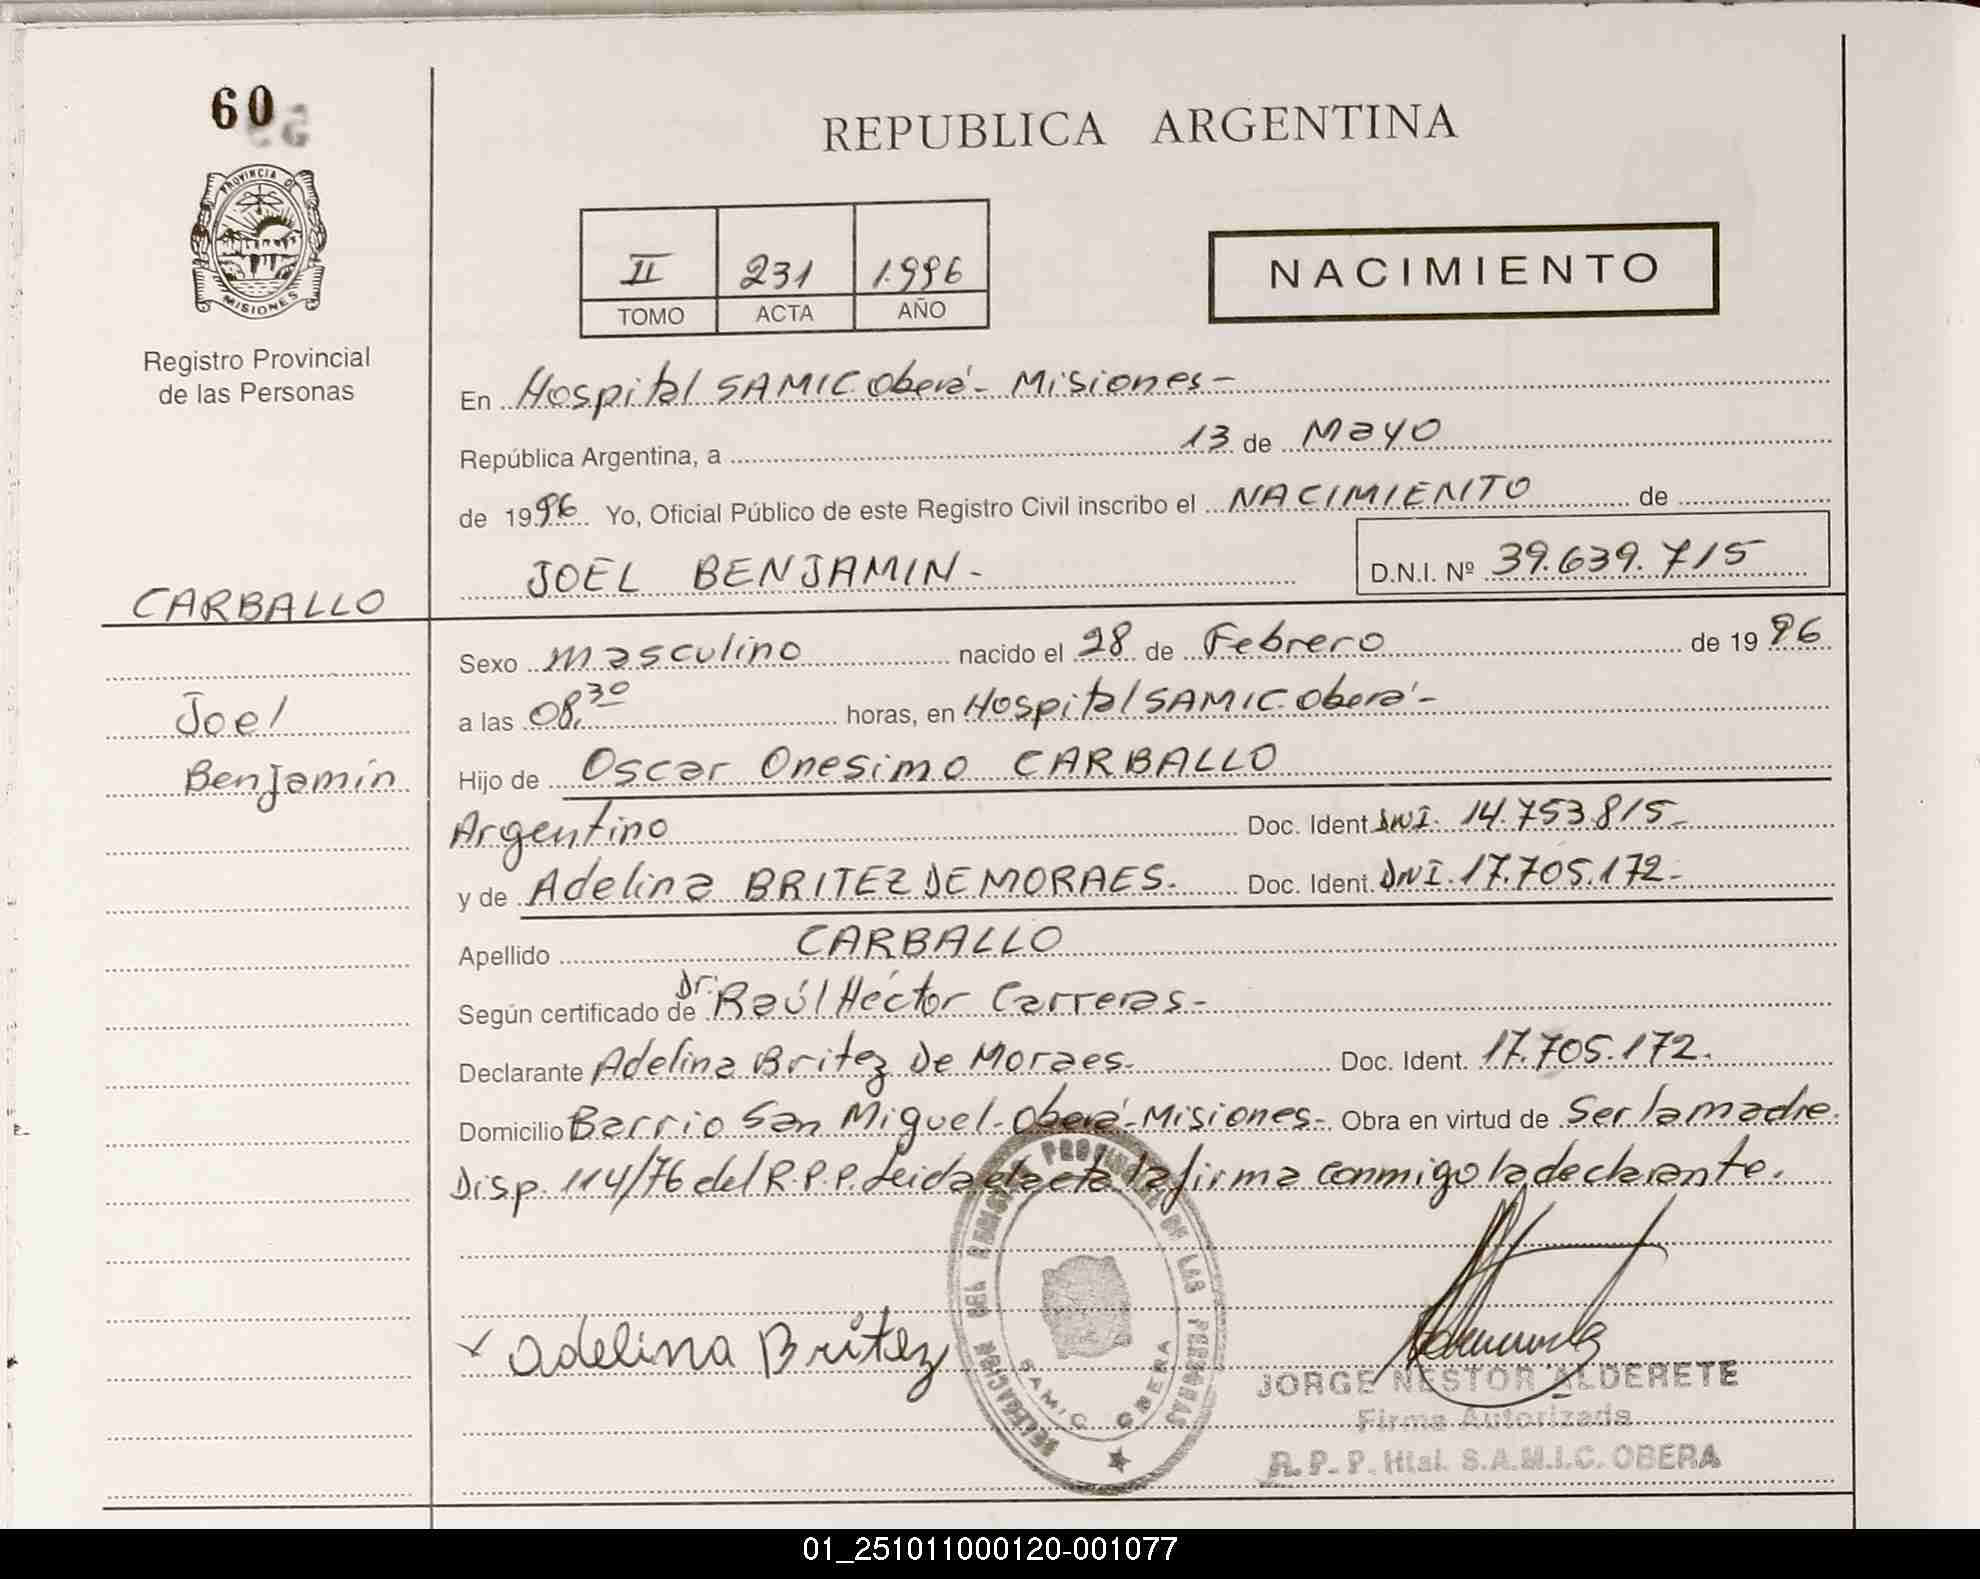 60
PROVINCIA DE
MISIONES
Registro Provincial
de las Personas
CARBALLO
Joel
Benjamín
REPUBLICA ARGENTINA
II 231 1.996
TOMO ACTA AÑO
NACIMIENTO
En Hospital SAMIC Oberá - Misiones -
República Argentina, a 13 de Mayo
de 1996 Yo, Oficial Público de este Registro Civil inscribo el NACIMIENTO de
JOEL BENJAMIN - D.N.I. Nº 39.639.715
Sexo Masculino nacido el 28 de Febrero de 1996
a las 08,30 horas, en Hospital SAMIC. Oberá -
Hijo de Oscar Onesimo CARBALLO
Argentino Doc. Ident DNI. 14.753.815 -
y de Adelina BRITEZ DE MORAES. Doc. Ident. DNI. 17.705.172 -
Apellido CARBALLO
Según certificado de Dr. Raúl Héctor Carreras -
Declarante Adelina Britez De Moraes. Doc. Ident. 17.705.172.
Domicilio Barrio San Miguel - Oberá - Misiones - Obra en virtud de Ser la madre.
Disp. 114/76 del R.P.P. Leida el acta la firma conmigo la declarante.
Adelina Britez
DELEGACION DEL REGISTRO PROVINCIAL DE LAS PERSONAS
SAMIC OBERA
JORGE NESTOR ALDERETE
Firma Autorizada
R. P. P. Htal. S.A.M.I.C. OBERA
01_251011000120-001077